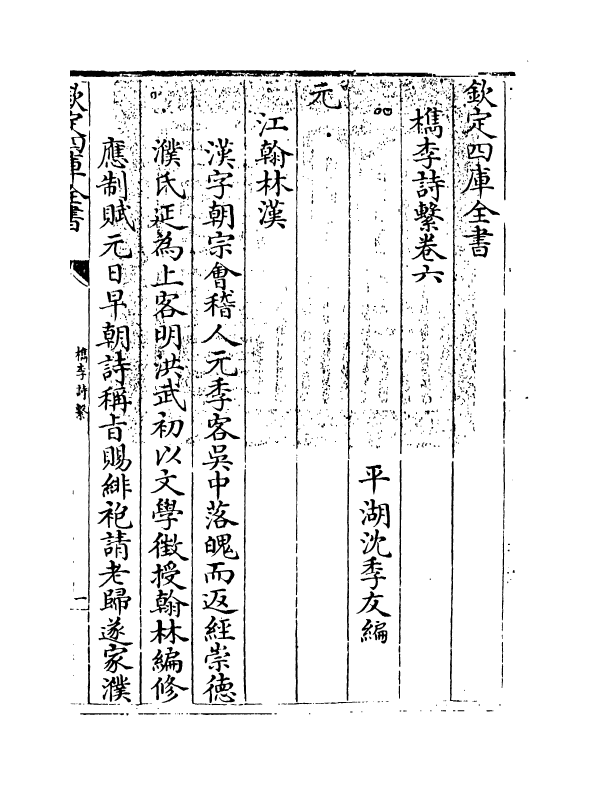 欽定四庫全書
檇李詩繫卷六
平湖沈季友編
元
江翰林漢
漢字朝宗會稽人元季客吳中落魄而返經崇德
濮氏延為上客明洪武初以文學徵授翰林編修
應制賦元日早朝詩稱旨賜緋袍請老歸遂家濮
欽定四庫全書
檇李詩繫
一